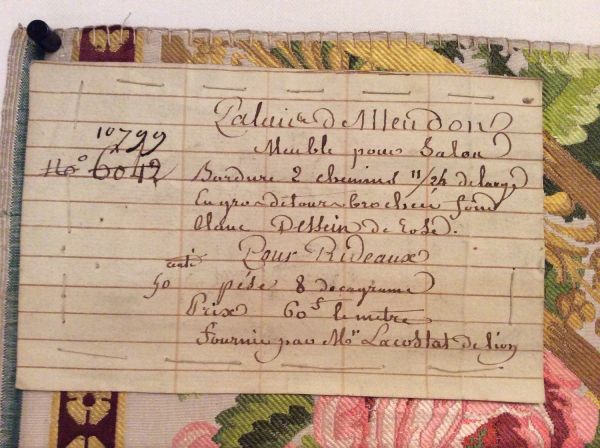 Palais de Meudon
10799
Meuble pour Salon
No 6042 Bordure 2 chemins 11/24 de large
En gros de tours broché fond
blanc Dessein de Rose.
Pour Rideaux
50 pése 8 decagrame
Prix 60f le mètre
fournie par Mr Lacostat de Lion